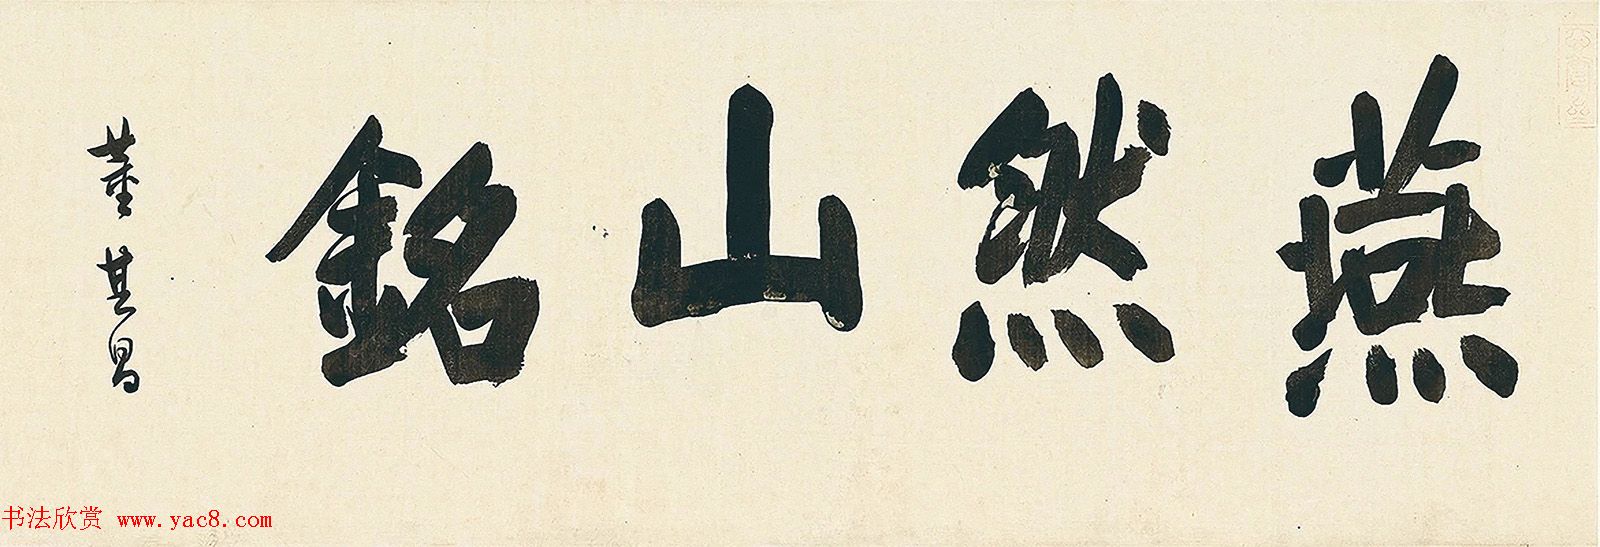 燕然山銘
董其昌
书法欣赏 www.yac8.com